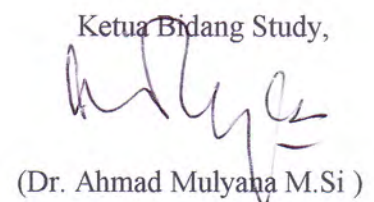 Ketua Bidang Study,
(Dr. Ahmad Mulyana M.Si )